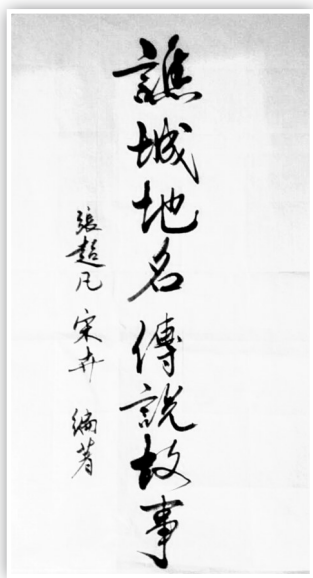 譙城地名傳說故事
張超凡 宋卉 編著